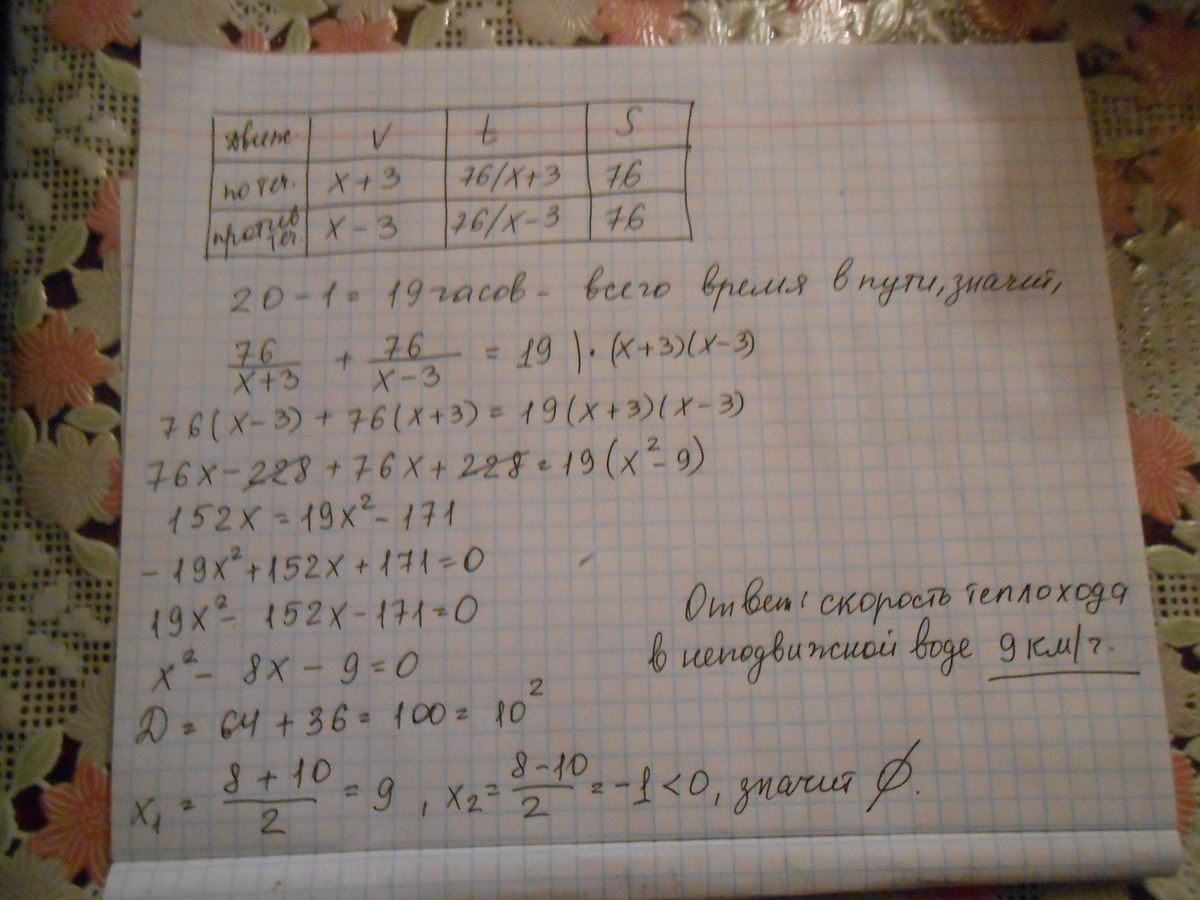 движ. V t S
по теч. x+3 76/x+3 76
против теч. x-3 76/x-3 76
20-1=19 часов - всего время в пути, значит,
76/(x+3) + 76/(x-3) = 19 | · (x+3)(x-3)
76(x-3)+76(x+3)=19(x+3)(x-3)
76x-228+76x+228=19(x²-9)
152x=19x²-171
-19x²+152x+171=0
19x²-152x-171=0
x²-8x-9=0
D=64+36=100=10²
x₁=(8+10)/2=9, x₂=(8-10)/2=-1<0, значит ∅.
Ответ: скорость теплохода
в неподвижной воде 9 км/ч.